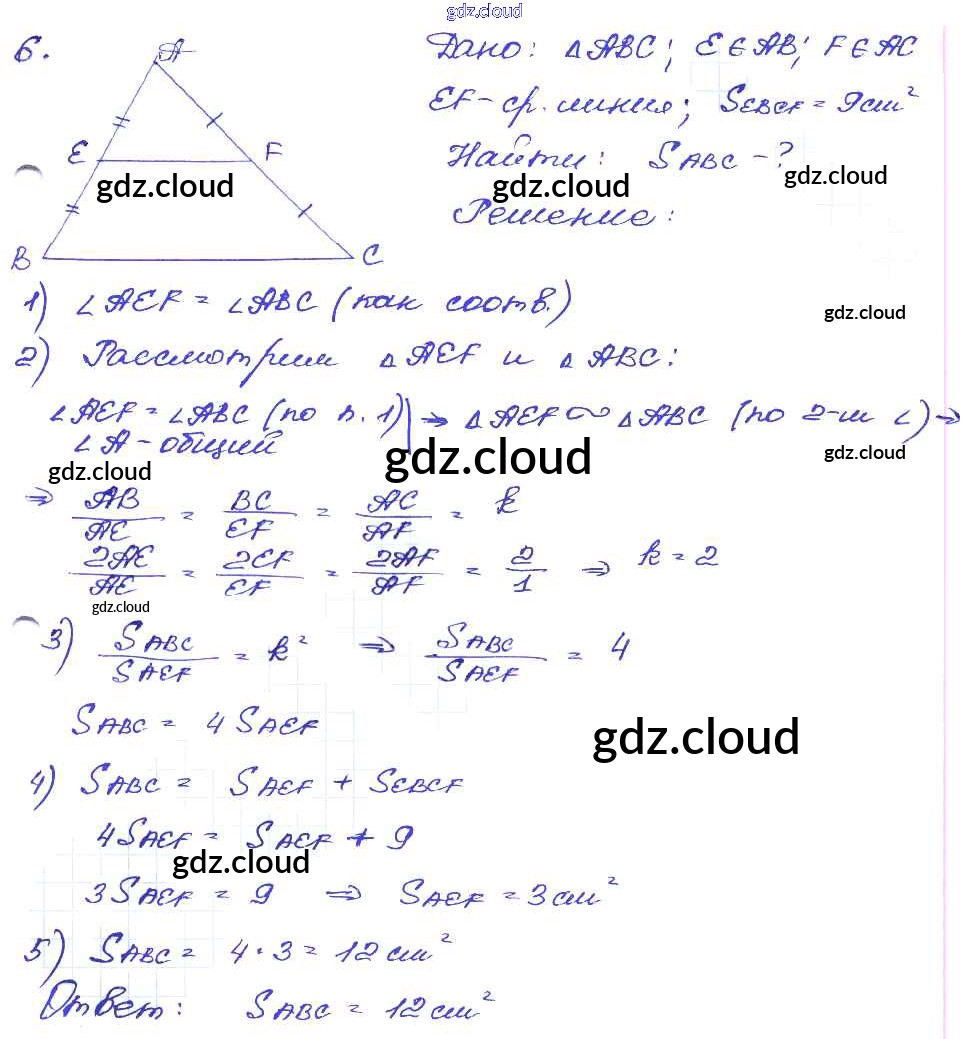 gdz.cloud
6.
A
E F
B C
Дано: △ABC; E∈AB; F∈AC
EF-ср. линия; SEBCF = 9см²
Найти: SABC - ?
gdz.cloud gdz.cloud gdz.cloud
Решение:
1) ∠AEF = ∠ABC (как соотв.)
gdz.cloud
2) Рассмотрим △AEF и △ABC:
∠AEF = ∠ABC (по п. 1) | ⇒ △AEF ∾ △ABC (по 2-м ∠) ⇒
∠A - общий
gdz.cloud gdz.cloud gdz.cloud
⇒ AB/AE = BC/EF = AC/AF = k
2AE/AE = 2EF/EF = 2AF/AF = 2/1 ⇒ k = 2
gdz.cloud
3) SABC/SAEF = k² ⇒ SABC/SAEF = 4
SABC = 4 SAEF
gdz.cloud
4) SABC = SAEF + SEBCF
4SAEF = SAEF + 9
gdz.cloud
3SAEF = 9 ⇒ SAEF = 3 см²
5) SABC = 4 · 3 = 12 см²
Ответ: SABC = 12 см²